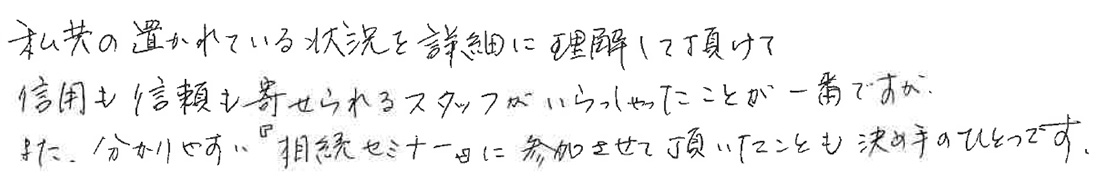 私共の置かれている状況を詳細に理解して頂けて
信用も信頼も寄せられるスタッフがいらっしゃったことが一番ですが、
また、分かりやすい『相続セミナー』に参加させて頂いたことも決め手のひとつです。